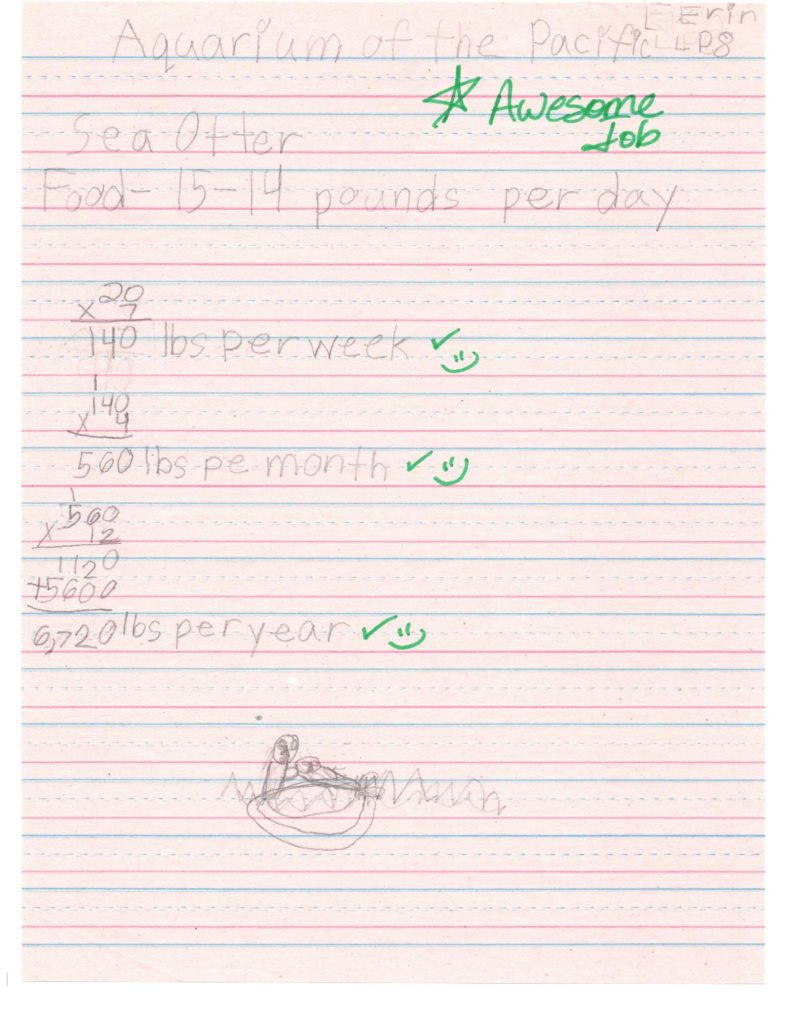 Erin
Aquarium of the Pacific 4P8
☆ Awesome Job
Sea Otter
Food- 15-14 pounds per day
20
x 7
140 lbs per week ✓
1
140
x 4
560 lbs pe month ✓
1
560
x 12
1120
+5600
6,720 lbs per year ✓